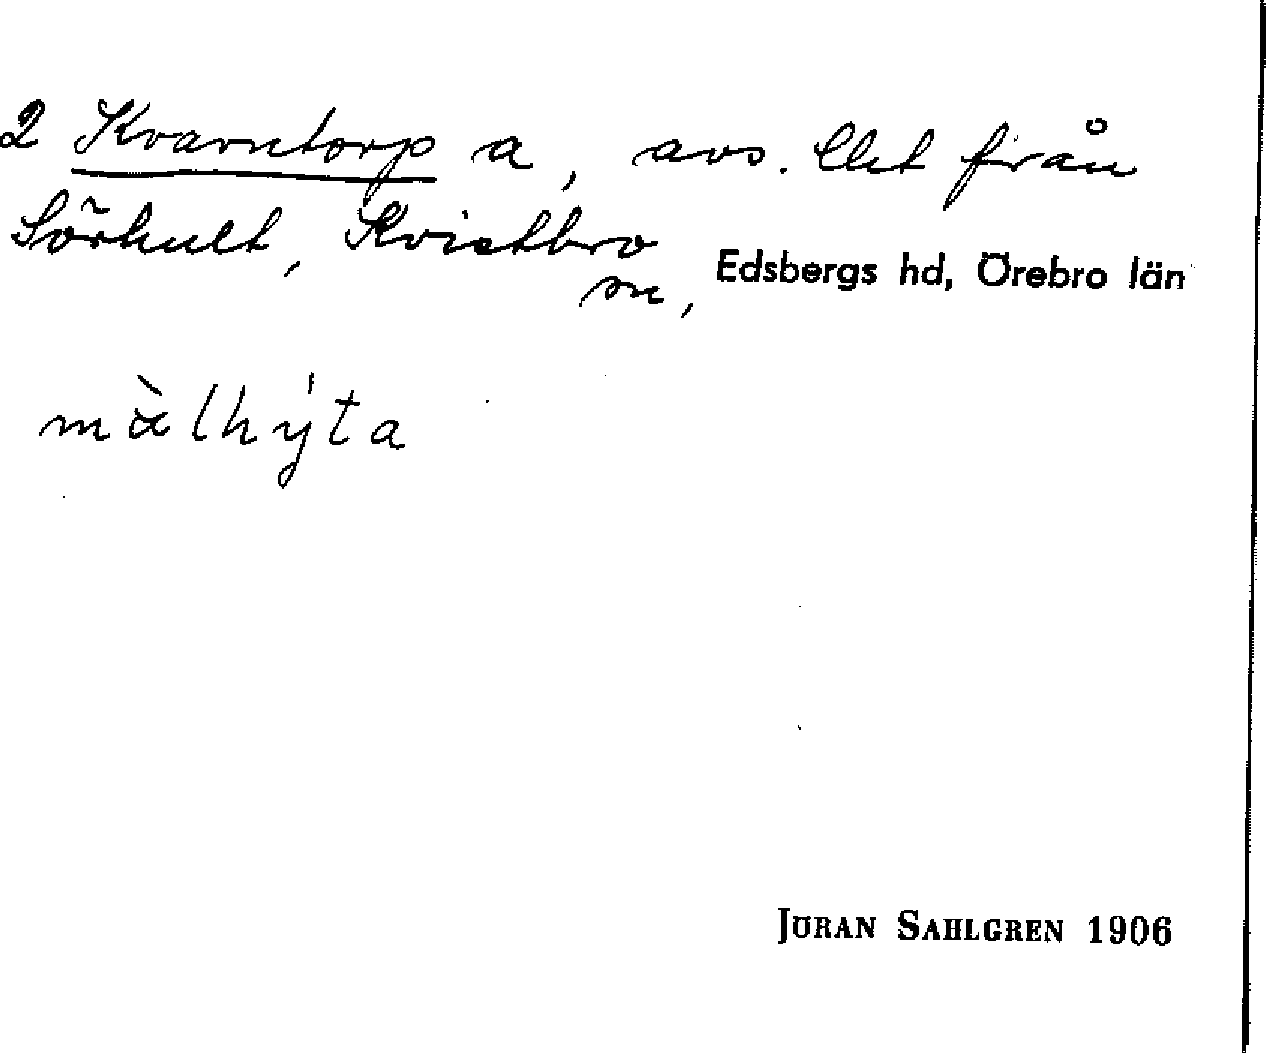 2 Kvarntorp a, avs. Ekt från
Sörhult, Kvistbro
sn, Edsbergs hd, Örebro län
màlhýta
JÖRAN SAHLGREN 1906